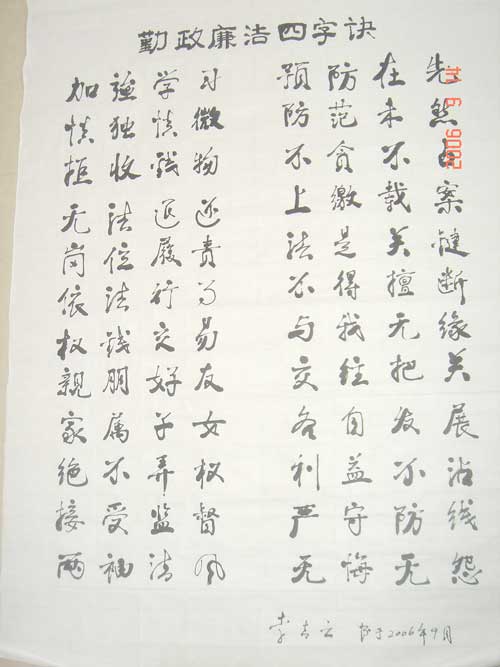 勤政廉洁四字诀
加强学习 预防在先
慎独慎微 防范未然
拒收钱物 不贪不占
无法退还 上缴 案
岗位履责 法是关键
依法行为 不得擅断
权钱交易 与我无缘
亲朋好友 交往把关
家属子女 各自发展
绝不弄权 利益不沾
接受监督 严守防线
两袖清风 无悔无怨
李 书于2006年9月
2006 9